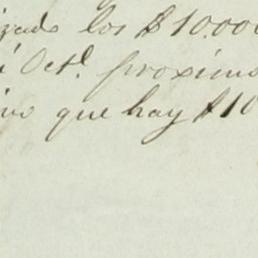 izado los $10.000
Oct.e proximo
que hay $10